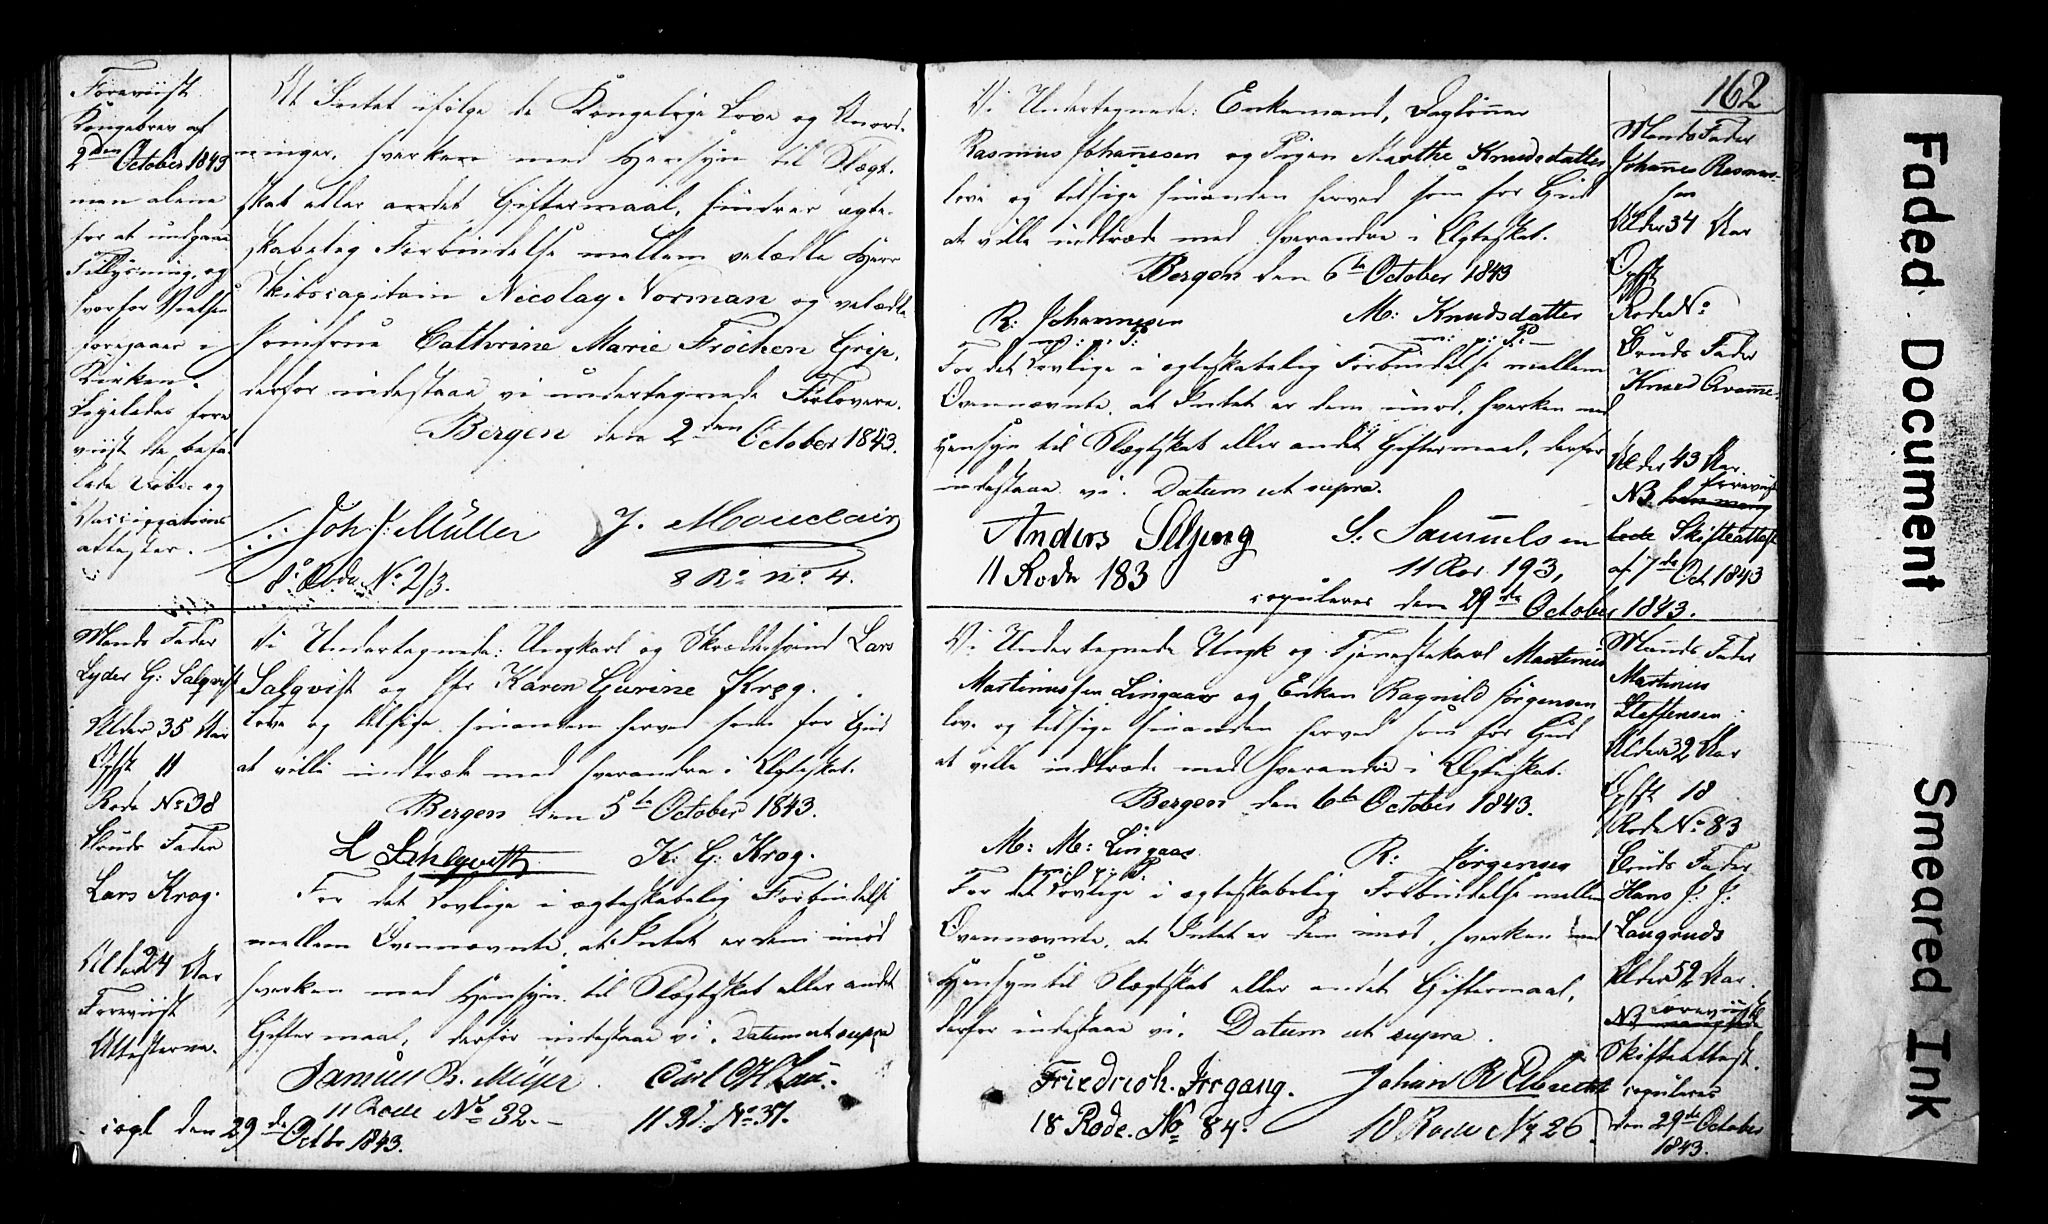 Foreviist
Kongebrev af
2den October 1843
men alene
for at undgaae
Tillysning, og
hvorfor Vielsen
foregaaer i
Kirken.
Ligeledes fore
viist de befa-
lede Døbe- og
Vaccinations
attester.
At Intet ifølge de Kongelige Love og Anord-
ninger, hverken med Hensyn til Slægt-
skab eller andet Giftermaal, hindrer ægte-
skabelig Forbindelse mellem velædle Herr
Skibscapitain Nicolay Norman og velædle
Jomfrue Cathrine Marie Frøchen Grip,
derfor indestaae vi undertegnede Forlovere.
Bergen den 2den October 1843.
Joh. J. Müller J. Mouclair
8de Rode No 2/3. 8 Ro no 4.
Mands Fader
Lyder G: Salqvist
Alder 35 Aar
Opft 11
Rode No 38
Bruds Fader
Lars Krog.
Alder 24 Aar
Foreviist
Attesterne.
Vi Undertegnede: Ungkarl og Skræddersvend Lars
Salqvist og Jfr Karen Gurine Krog.
love og tilsige hinanden herved som for Gud
at ville indtræde med hverandre i Ægteskab.
Bergen den 5te October 1843.
L Sahlqvist K: G: Krog.
For det Lovlige i ægteskabelig Forbindelse
mellem Ovennævnte, at Intet er dem imod
hverken med Hensyn til Slægtskab eller andet
Giftermaal, derfor indestaae vi. Datum ut supra
Samuel B. Meyer. Carl O H Lau.
11 Rode No 32. 11 Rd. No 37.
copl den 29de Octbr 1843.
162
Vi Undertegnede: Enkemand, Daglønner
Rasmus Johannesen og Pigen Marthe Knudsdatter
love og tilsige hinanden herved som for Gud
at ville indtræde med hverandre i Ægteskab.
Bergen den 6te October 1843
R: Johannesen M: Knudsdatter
m: p: P: m: p: P:
For det Lovlige i ægteskabelig Forbindelse mellem
Ovennævnte, at Intet er dem imod, hverken med
Hensyn til Slægtskab eller andet Giftermaal, derfor
indestaae vi. Datum ut supra.
Anders Seljeng S. Samuelsen
11 Rode 183 11 Rod. 193,
copuleres den 29de October 1843.
Mands Fader
Johannes Rasmus-
sen
Alder 34 Aar
Opft
Rode No
Bruds Fader
Knud
Alder 43 Aar
foreviist
NB
Skifteattest
af 7de Oct. 1843
Vi Undertegnede Ungk og Tjenestekarl Martinus
Martinussen Lingaas og Enken Ragnild Jørgensen
love og tilsige hinanden herved som for Gud
at ville indtræde med hverandre i Ægteskab.
Bergen den 6te October 1843.
M: M: Lingaas R: Jørgensen
m: p: P.
For det Lovlige i ægteskabelig Forbindelse mellem
Ovennævnte, at Intet er dem imod, hverken med
Hensyn til Slægtskab eller andet Giftermaal,
derfor indestaae vi. Datum ut supra.
Friedrich. Irrgang. Johan R Albrecht
18 Rode. No 84. 18 Rode No 26.
Mands Fader
Martinus
Steffensen
Alder 32 Aar
Opft 18
Rode No 83
Bruds Fader
Hans J: J:
Laugruds
Alder 52 Aar.
foreviist
NB manglede
Skifteattest.
copuleres
den 29de October
1843.
Faded Document
Smeared Ink